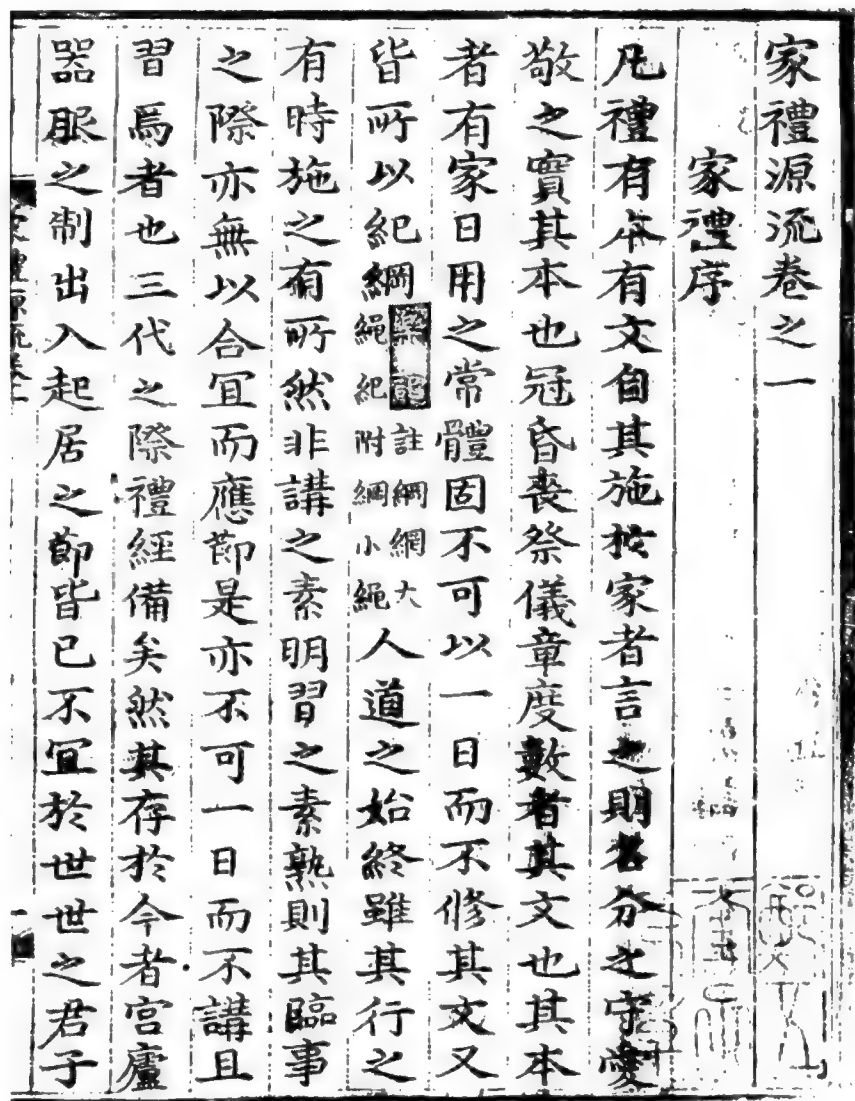 家禮源流卷之一
家禮序
凡禮有本有文自其施於家者言之則名分之守愛
敬之實其本也冠昏喪祭儀章度數者其文也其本
者有家日用之常體固不可以一日而不修其文又
皆所以紀綱註綱網大繩紀附綱小繩人道之始終雖其行之
有時施之有所然非講之素明習之素熟則其臨事
之際亦無以合宜而應節是亦不可一日而不講且
習焉者也三代之際禮經備矣然其存於今者宮廬
器服之制出入起居之節皆已不宜於世世之君子
家禮源流卷之一